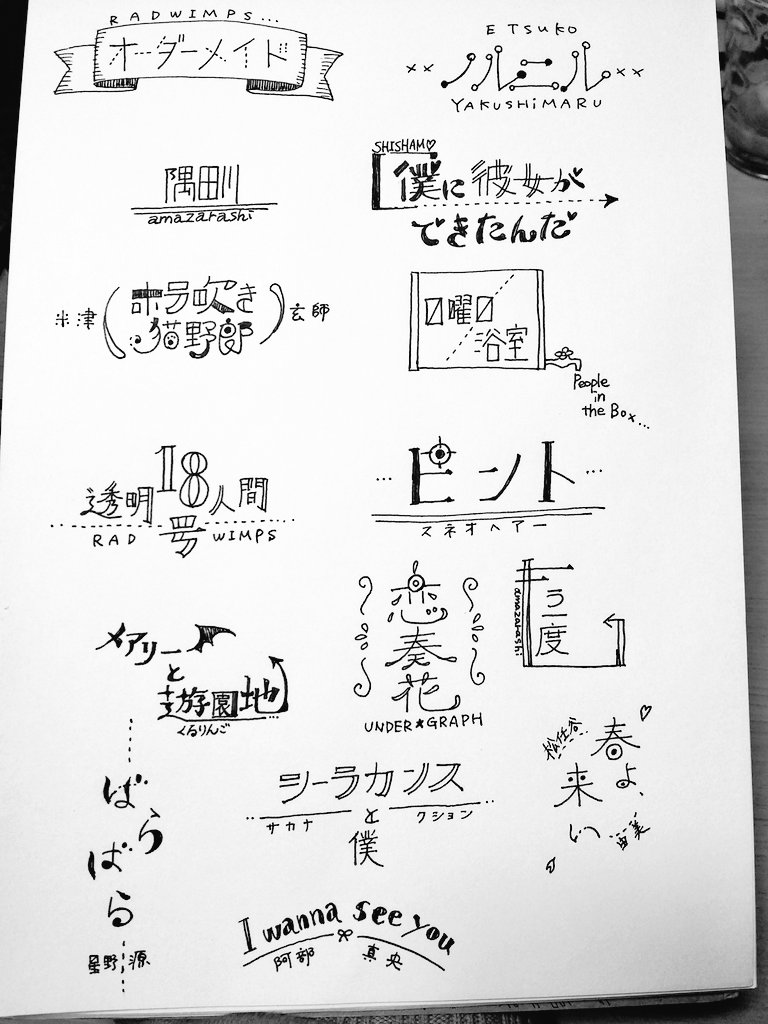 RADWIMPS...
オーダーメイド
ETSUKO
××ノルニル××
YAKUSHiMARU
隅田川
amazarashi
SHISHAMO♡
僕に彼女が
できたんだ
米津 玄師
ホラ吹き
猫野郎
日曜日
浴室
People
in
the Box...
透明18人間
号
RAD WIMPS
...ピント...
スネオヘアー
メアリー
と
遊園地
くるりんご
恋
奏
花
UNDER★GRAPH
もう
一度
amazarashi
ばらばら
星野源
シーラカンス
と
僕
サカナ クション
松任谷
春
よ、
来
い
由実
I wanna see you
阿部 真央